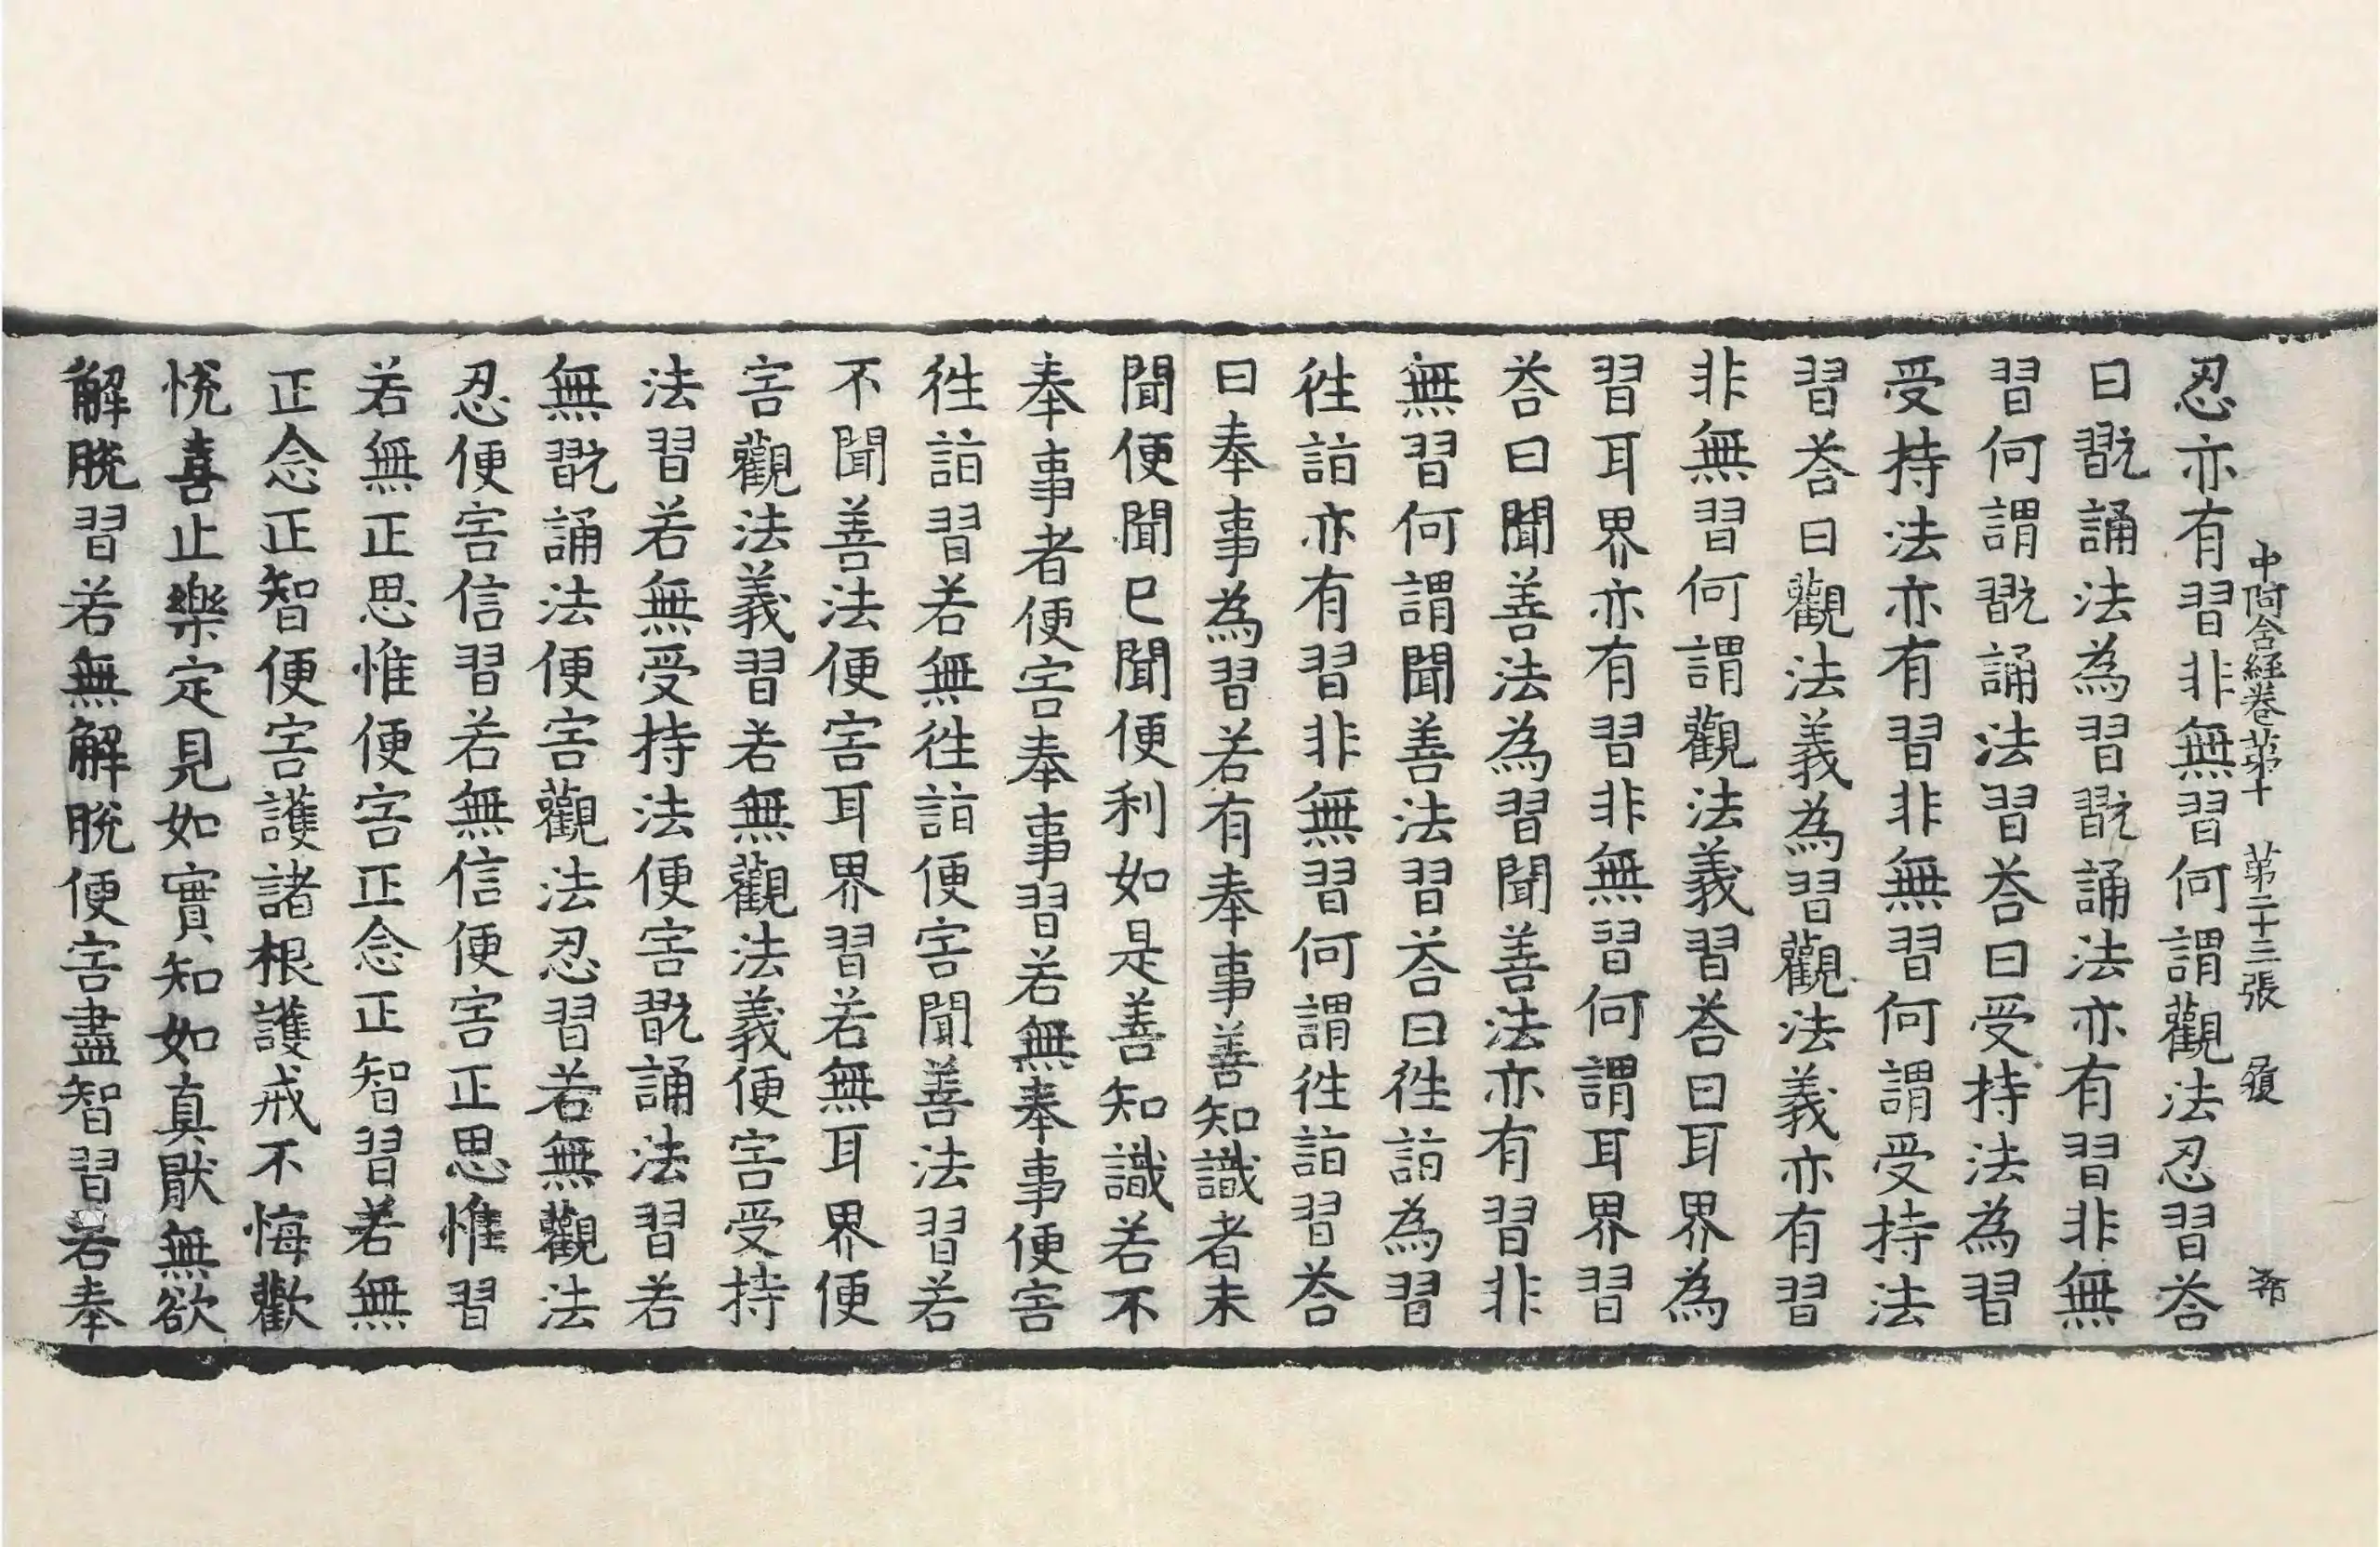 中阿含經卷第十　第二十三張　履
忍亦有習非無習何謂觀法忍習荅
曰翫誦法為習翫誦法亦有習非無
習何謂翫誦法習荅曰受持法為習
受持法亦有習非無習何謂受持法
習荅曰觀法義為習觀法義亦有習
非無習何謂觀法義習荅曰耳界為
習耳界亦有習非無習何謂耳界習
荅曰聞善法為習聞善法亦有習非
無習何謂聞善法習荅曰徃詣為習
徃詣亦有習非無習何謂徃詣習荅
曰奉事為習若有奉事善知識者未
聞便聞已聞便利如是善知識若不
奉事者便害奉事習若無奉事便害
徃詣習若無徃詣便害聞善法習若
不聞善法便害耳界習若無耳界便
害觀法義習若無觀法義便害受持
法習若無受持法便害翫誦法習若
無翫誦法便害觀法忍習若無觀法
忍便害信習若無信便害正思惟習
若無正思惟便害正念正智習若無
正念正智便害護諸根護戒不悔歡
悅喜止樂定見如實知如真猒無欲
解脫習若無解脫便害盡智習若奉